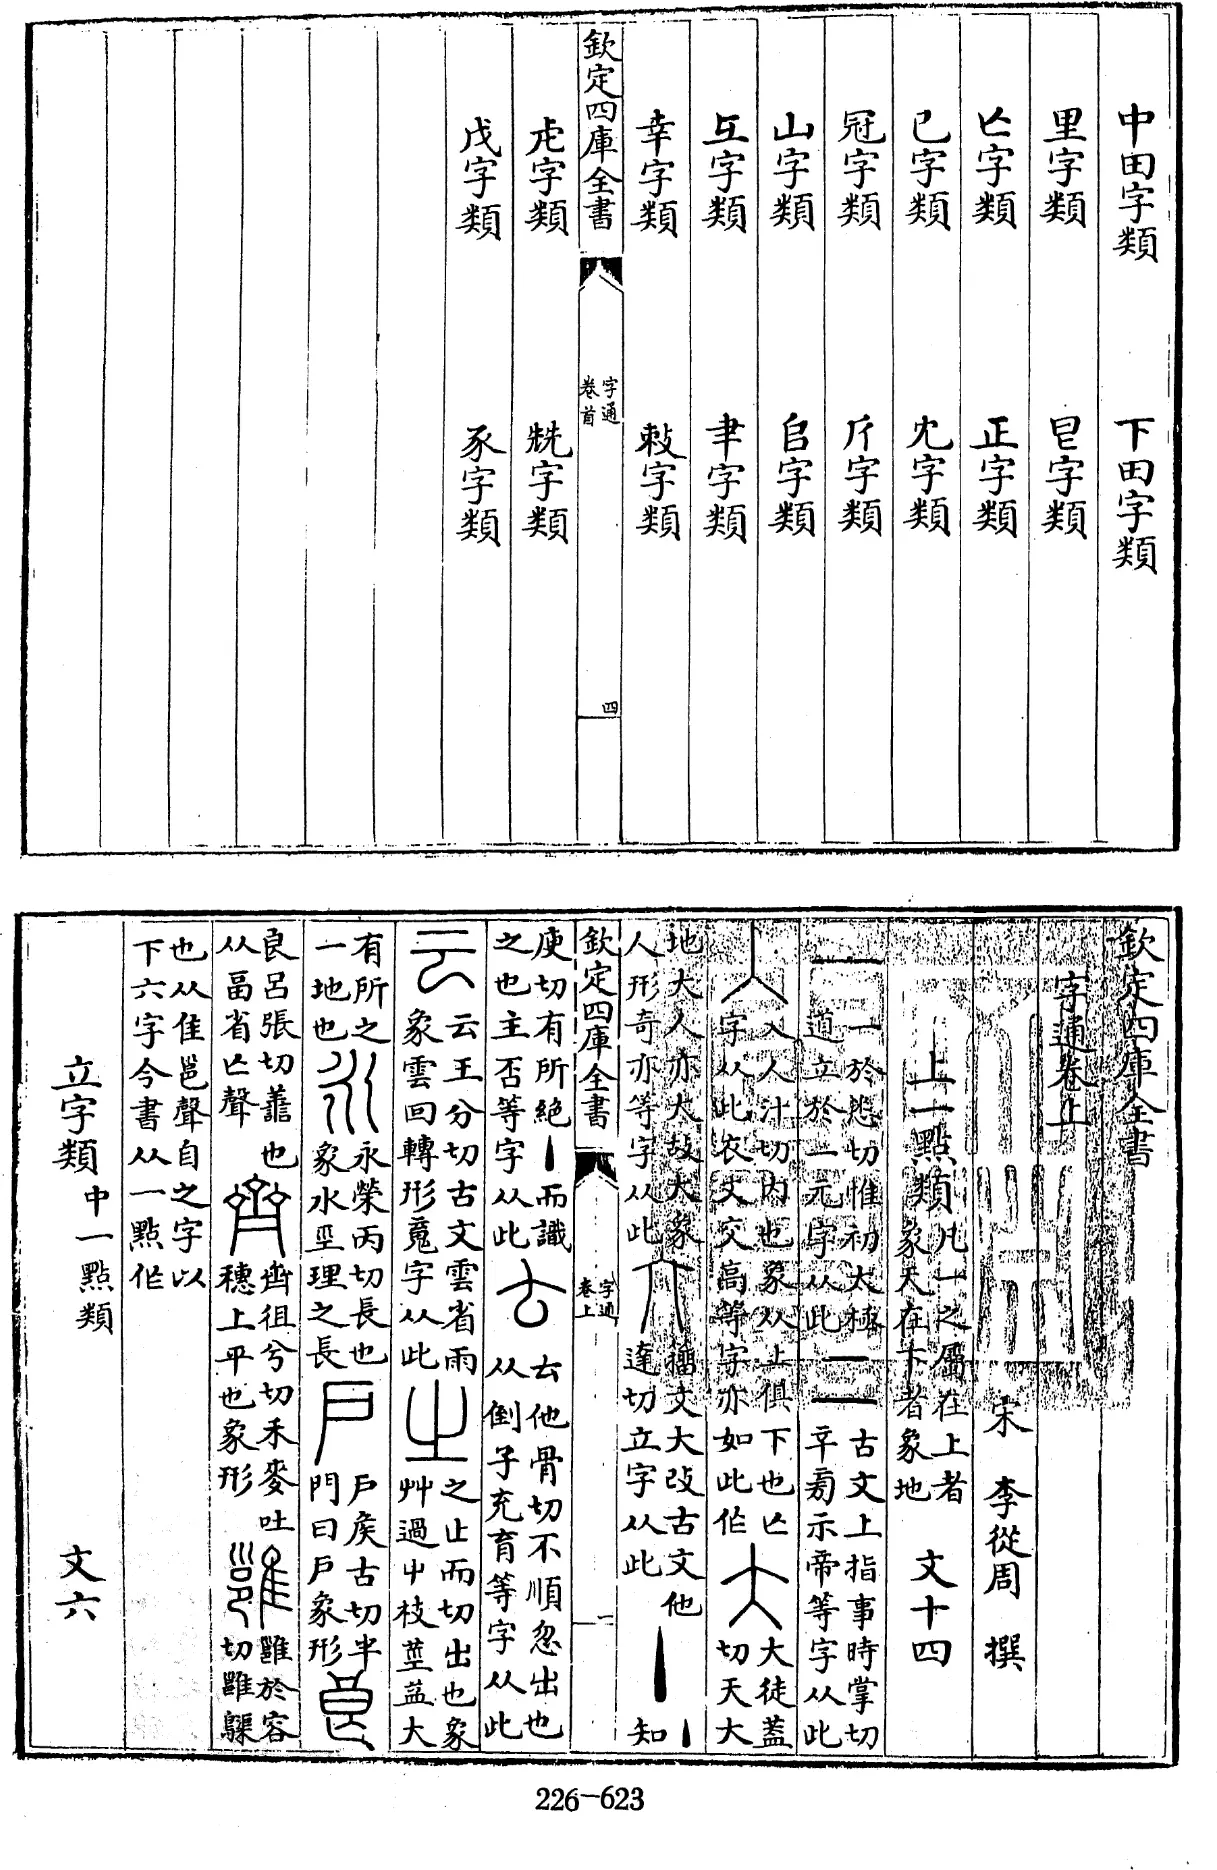 中田字類　下田字類
里字類　㠯字類
𠤎字類　正字類
已字類　冘字類
冠字類　斤字類
山字類　𠂤字類
互字類　聿字類
幸字類　敕字類
欽定四庫全書
字通
卷首
四
虍字類　兟字類
戊字類　豕字類
欽定四庫全書
字通卷上
宋　李從周　撰
上一點類　凡一之屬在上者
象天在下者象地　文十四
一　一於悉切惟初太極
道立於一元字从此　二　古文上指事時掌切
辛䇂示帝等字从此
入　入人汁切内也象从上俱下也亡
字从此衣文交高等字亦如此作　大　大徒蓋
切天大
地大人亦大故大象
人形奇亦等字从此　籒文大改古文他
達切立字从此　丶　丶知
欽定四庫全書
字通
卷上
一
庾切有所絶丶而識
之也主否等字从此　𠫓　𠫓他骨切不順忽出也
从倒子充育等字从此
云　云王分切古文雲省雨
象雲回轉形䰟字从此　之　之止而切出也象
艸過屮枝莖益大
有所之
一地也　永　永榮丙切長也
象水巠理之長　戶　戶矦古切半
門曰戶象形　良
良呂張切譱也
从畐省亡聲　齊　齊徂兮切禾麥吐
穗上平也象形　雝　雝於容
切雝𪆫
也从隹邕聲自之字以
下六字今書从一點作
立字類　中一點類　文六
226-623